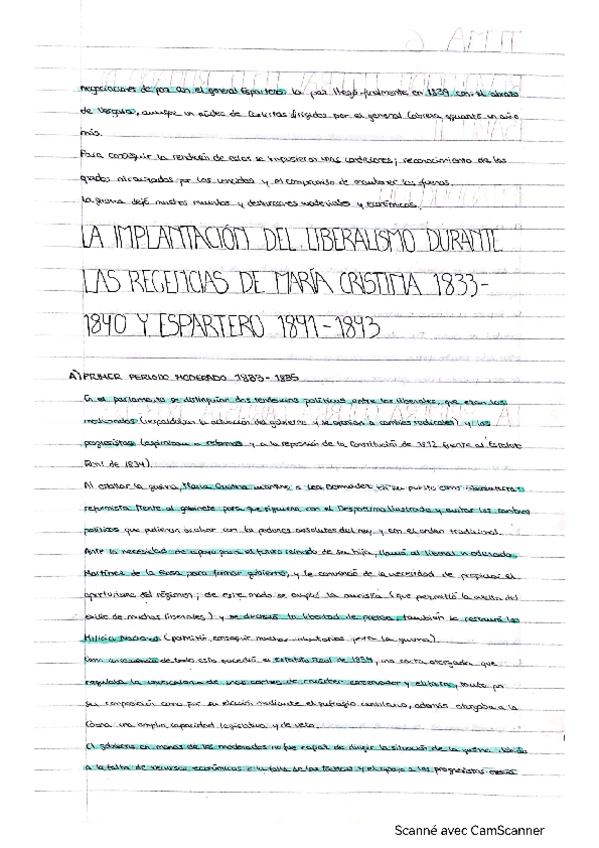 negociaciones de paz con el general Espartero. La paz llegó finalmente en 1839 con el abrazo
de Vergara, aunque un núcleo de Carlistas dirigidos por el general Cabrera, aguantó un año
más.
Para conseguir la rendición de estos se impusieron unas condiciones; reconocimiento de los
grados alcanzados por los vencidos y el compromiso de mantener los fueros.
La guerra dejó muchos muertos y destrucciones materiales y económicas.
LA IMPLANTACIÓN DEL LIBERALISMO DURANTE
LAS REGENCIAS DE MARÍA CRISTINA 1833-
1840 Y ESPARTERO 1841-1843
A) PRIMER PERIODO MODERADO 1833-1835
En el parlamento se distinguían dos tendencias políticas entre los liberales, que eran los
moderados (respaldaban la actuación del gobierno y se oponían a cambios radicales) y los
progresistas (aspiraban a reformas y a la reposición de la Constitución de 1812 frente al Estatuto
Real de 1834).
Al estallar la guerra, María Cristina mantuvo a Cea Bermúdez en su puesto como
reformista frente al gabinete para que siguiera con el Despotismo Ilustrado y evitar los cambios
políticos que pudieran acabar con los poderes absolutos del rey y con el orden tradicional.
Ante la necesidad de apoyo para el futuro reinado de su hija, llamó al liberal moderado
Martínez de la Rosa para formar gobierno, y le convenció de la necesidad de propiciar el
aperturismo del régimen; de este modo se amplió la amnistía (que permitió la vuelta del
exilio de muchos liberales) y se decretó la libertad de prensa, también se restauró la
Milicia Nacional (permitió conseguir muchos voluntarios para la guerra).
Como consecuencia de todo esto sucedió el Estatuto Real de 1834, una carta otorgada que
regulaba la convocatoria de unas cortes de carácter conservador y elitista, tanto por
su composición como por su elección mediante el sufragio censitario, además otorgaba a la
Corona una amplia capacidad legislativa y de veto.
El gobierno en manos de los moderados no fue capaz de dirigir la situación de la guerra
a la falta de recursos económicos a la falta de las tácticas y el apoyo a los progresistas
Scanné avec CamScanner